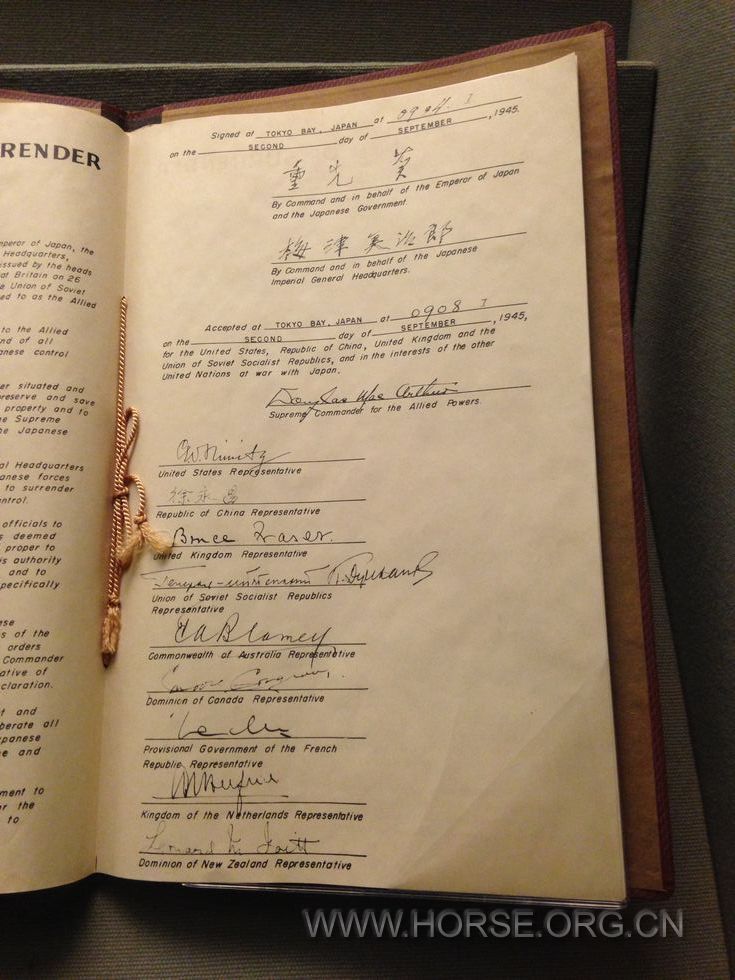 RENDER
mperor of Japan, the
Headquarters,
issued by the heads
at Britain on 26
e Union of Soviet
ed to as the Allied
to the Allied
nd of all
anese control
er situated and
preserve and save
property and to
he Supreme
the Japanese
al Headquarters
anese forces
to surrender
ontrol.
officials to
s deemed
proper to
is authority
and to
pecifically
ese
s of the
orders
Commander
ative of
claration.
t and
berate all
apanese
e and
ment to
r the
to
Signed at TOKYO BAY, JAPAN at 0904 I
on the SECOND day of SEPTEMBER, 1945.
重光葵
By Command and in behalf of the Emperor of Japan
and the Japanese Government.
梅津美治郎
By Command and in behalf of the Japanese
Imperial General Headquarters.
Accepted at TOKYO BAY, JAPAN at 0908 I
on the SECOND day of SEPTEMBER, 1945,
for the United States, Republic of China, United Kingdom and the
Union of Soviet Socialist Republics, and in the interests of the other
United Nations at war with Japan.
Douglas MacArthur
Supreme Commander for the Allied Powers.
C.W. Nimitz
United States Representative
徐永昌
Republic of China Representative
Bruce Fraser.
United Kingdom Representative
Union of Soviet Socialist Republics
Representative
T A Blamey
Commonwealth of Australia Representative
Dominion of Canada Representative
Provisional Government of the French
Republic Representative
Kingdom of the Netherlands Representative
Leonard M Isitt
Dominion of New Zealand Representative
WWW.HORSE.ORG.CN